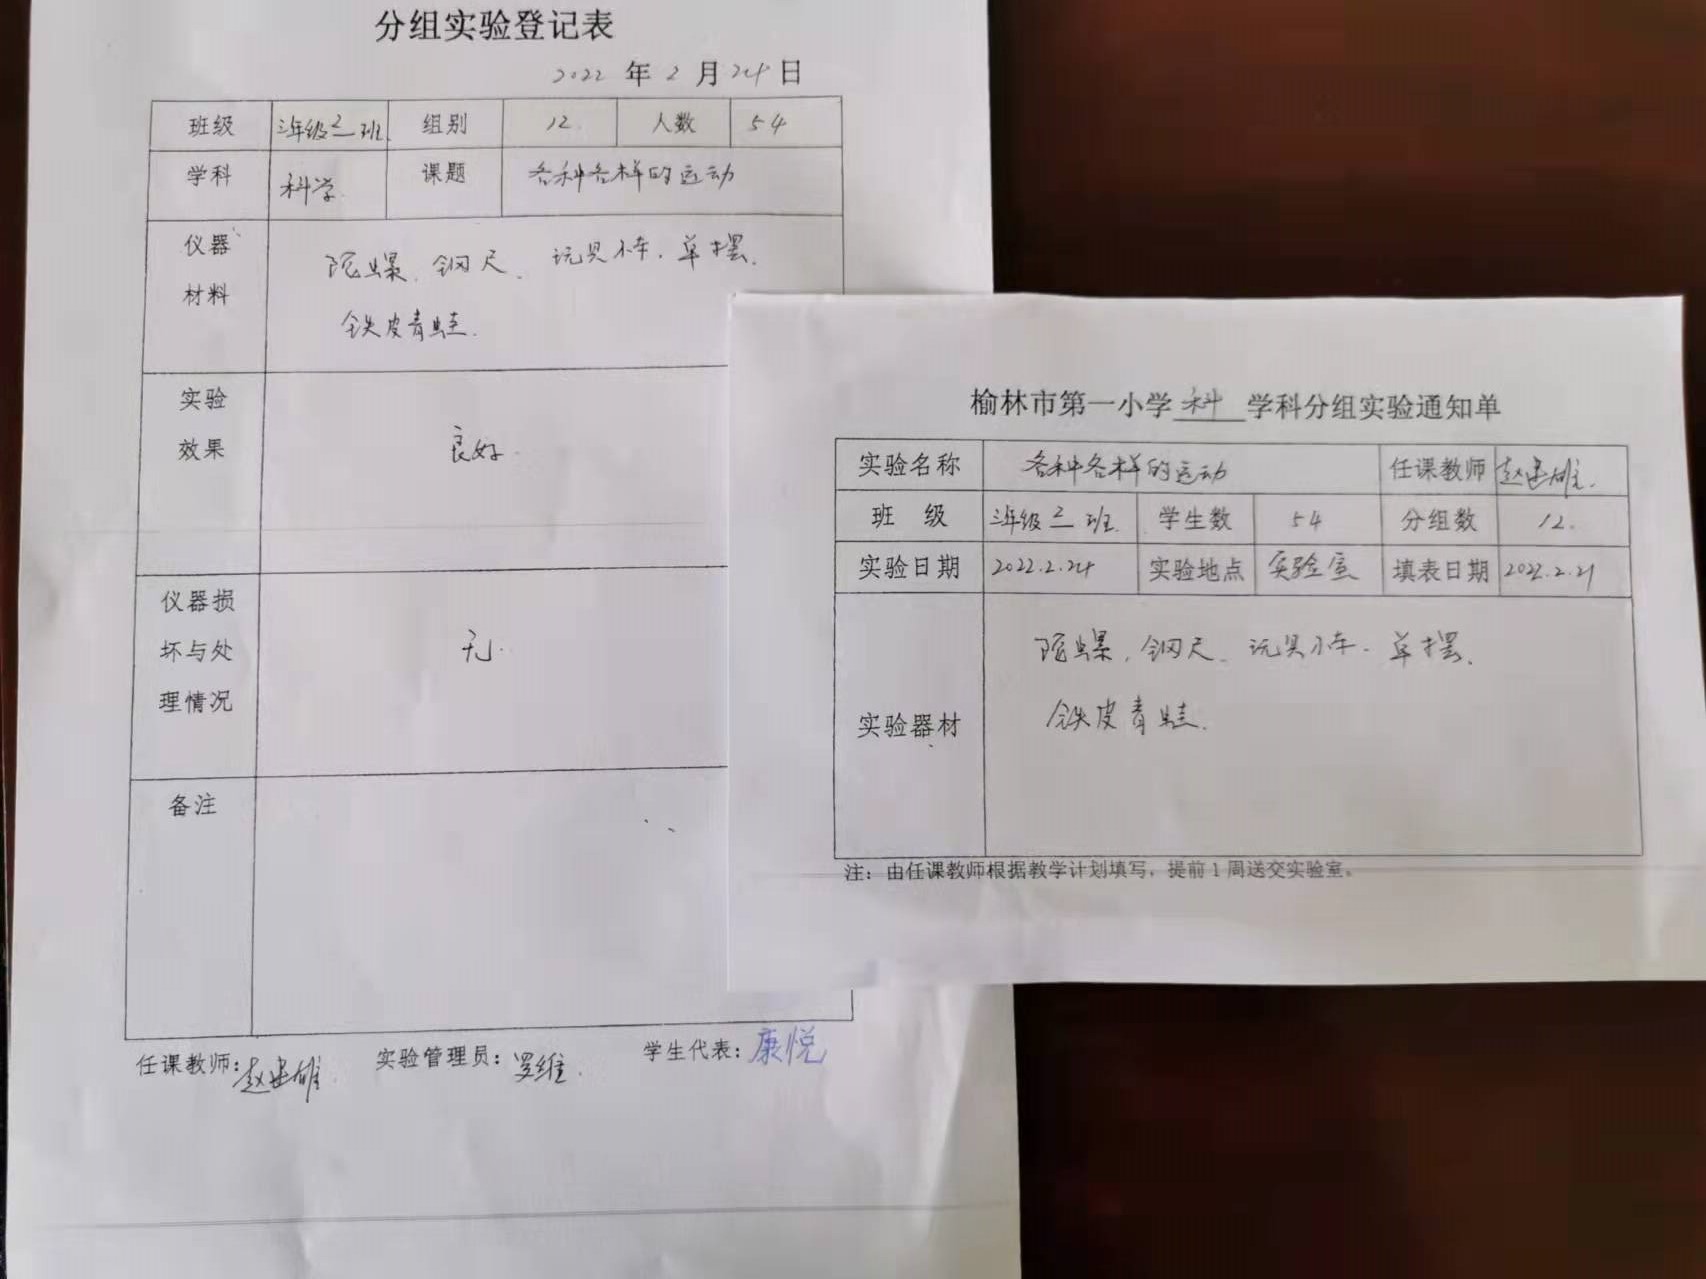 分组实验登记表
2022 年 2 月 24 日
班级 三年级二班 组别 12. 人数 54
学科 科学. 课题 各种各样的运动
仪器材料 陀螺、钢尺、玩具小车、单摆、
铁皮青蛙.
实验效果 良好.
仪器损坏与处理情况 无.
备注
任课教师: 赵 雄. 实验管理员: 罗维. 学生代表: 康悦
榆林市第一小学 科 学科分组实验通知单
实验名称 各种各样的运动 任课教师 赵 雄.
班 级 三年级二班. 学生数 54 分组数 12.
实验日期 2022.2.24 实验地点 实验室 填表日期 2022.2.21
实验器材 陀螺、钢尺、玩具小车、单摆、
铁皮青蛙.
注：由任课教师根据教学计划填写，提前1周送交实验室。